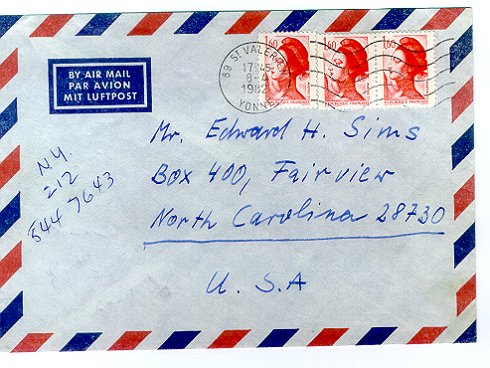 BY AIR MAIL
PAR AVION
MIT LUFTPOST
89 ST VALERIEN
17-45
8-4
1982
YONNE
1,60
1,60
1,60
Mr. Edward H. Sims
Box 400, Fairview
North Carolina 28730
U.S.A
N.Y.
212
544 7643